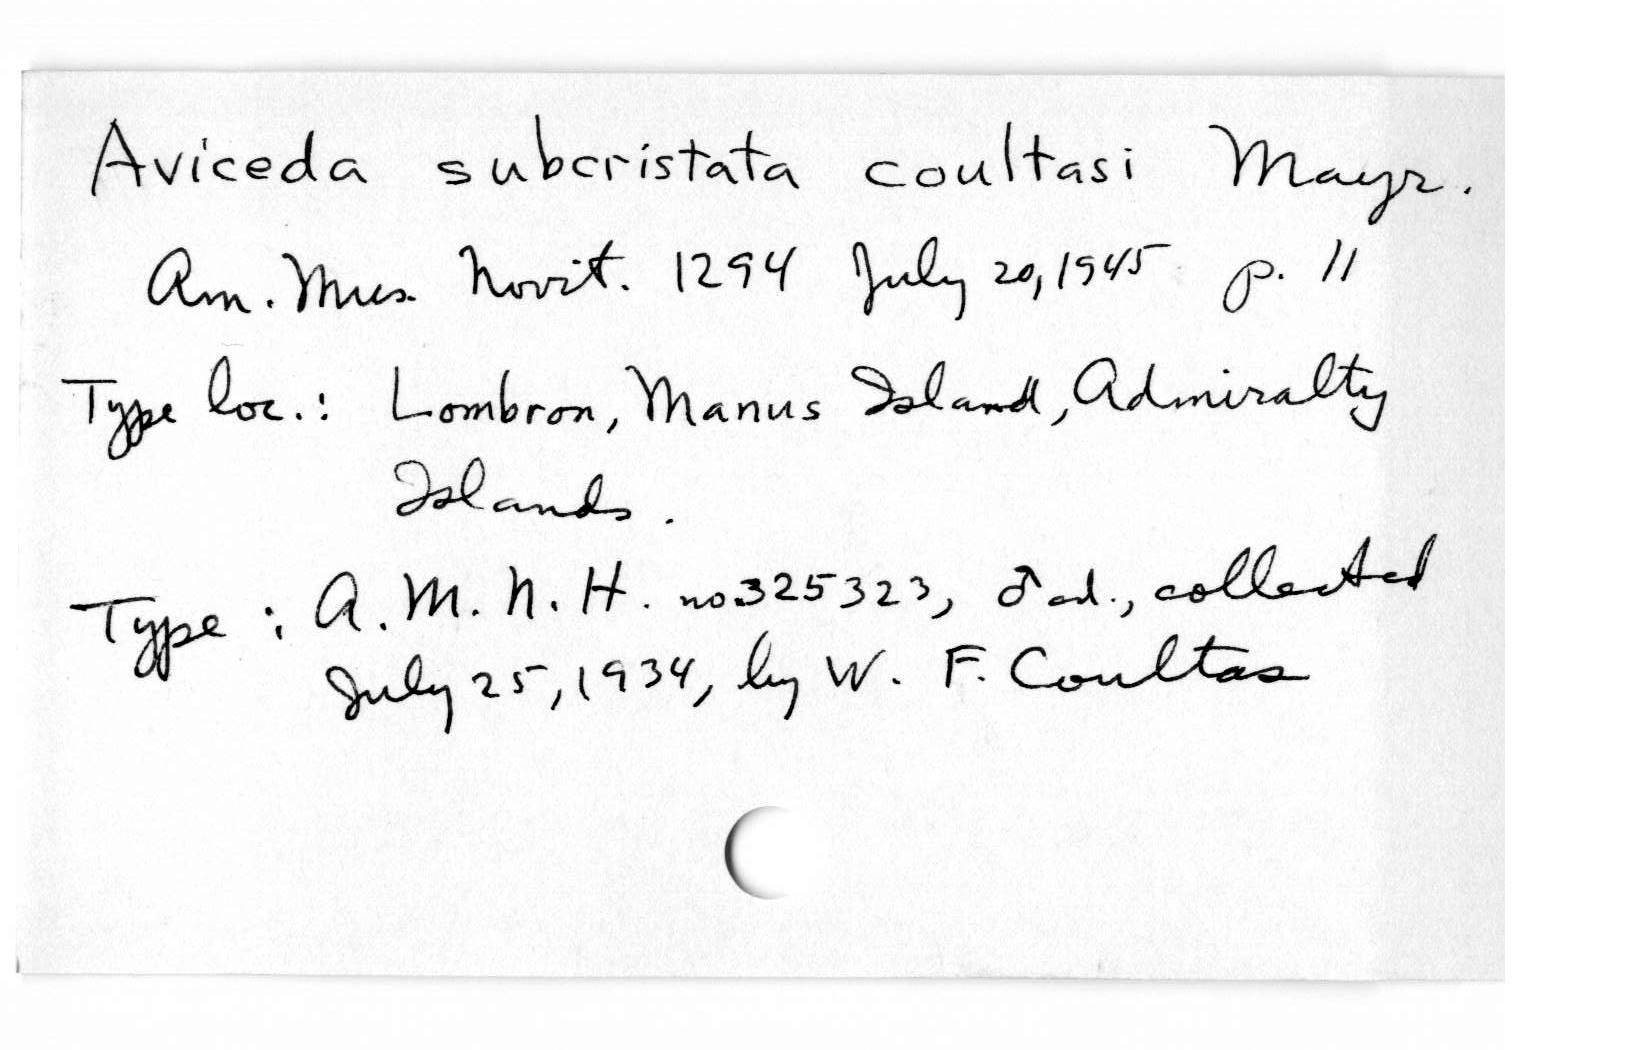 Aviceda subcristata coultasi Mayr.
Am. Mus. Novit. 1294 July 20, 1945 p. 11
Type loc.: Lombron, Manus Island, Admiralty
Islands.
Type: A. M. N. H. no. 325323, ♂ ad., collected
July 25, 1934, by W. F. Coultas